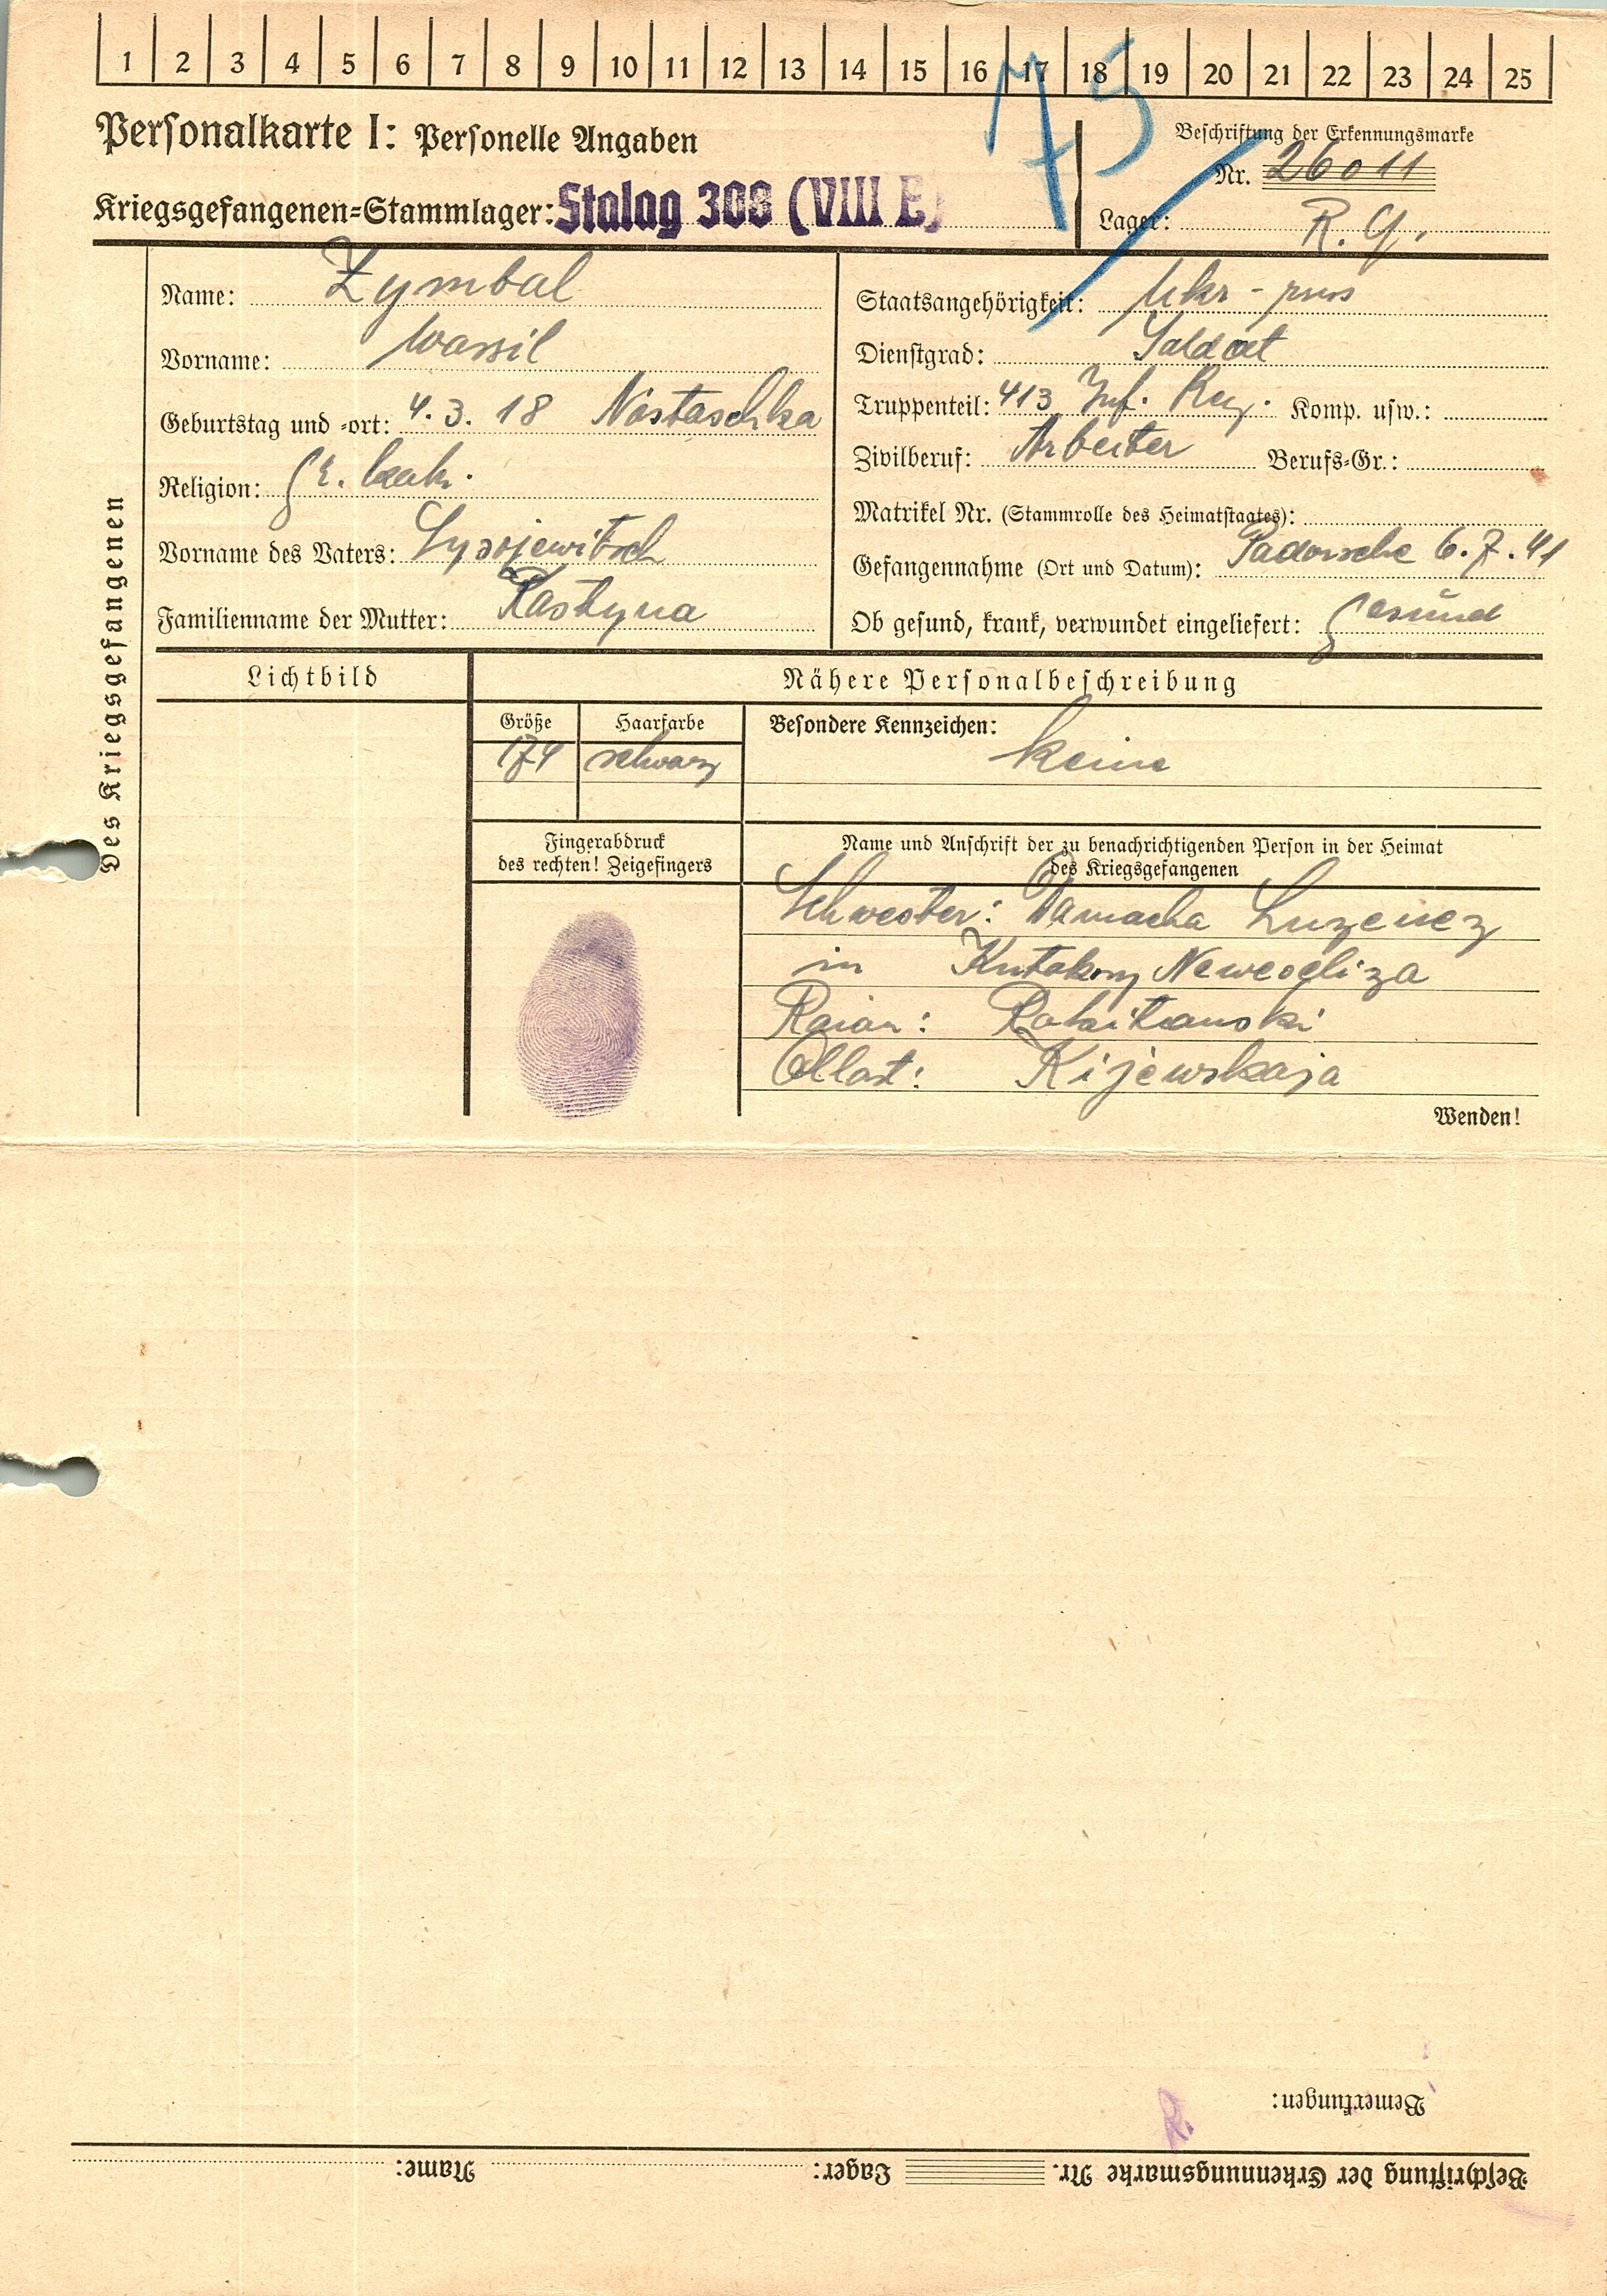 1 2 3 4 5 6 7 8 9 10 11 12 13 14 15 16 17 18 19 20 21 22 23 24 25
75
Personalkarte I: Personelle Angaben
Kriegsgefangenen-Stammlager: Stalag 308 (VIII E)
Beschriftung der Erkennungsmarke
Nr. 26011
Lager: R. G.
Des Kriegsgefangenen
Name: Zymbal
Vorname: Wassil
Geburtstag und -ort: 4. 3. 18 Nastaschka
Religion: gr. kath.
Vorname des Vaters: Sysojewitsch
Familienname der Mutter: Kastyna
Staatsangehörigkeit: Ukr - russ
Dienstgrad: Soldat
Truppenteil: 413 Inf. Reg. Komp. usw.:
Zivilberuf: Arbeiter Berufs-Gr.:
Matrikel Nr. (Stammrolle des Heimatstaates):
Gefangennahme (Ort und Datum): 6.7.41
Ob gesund, krank, verwundet eingeliefert: gesund
Lichtbild
Nähere Personalbeschreibung
Größe
174
Haarfarbe
schwarz
Besondere Kennzeichen:
keine
Fingerabdruck
des rechten! Zeigefingers
Name und Anschrift der zu benachrichtigenden Person in der Heimat
des Kriegsgefangenen
Schwester: Luzenez
in
Raion: Rakitanski
Oblast: Kijewskaja
Wenden!
Bemerkungen:
Beschriftung der Erkennungsmarke Nr. Lager: Name: